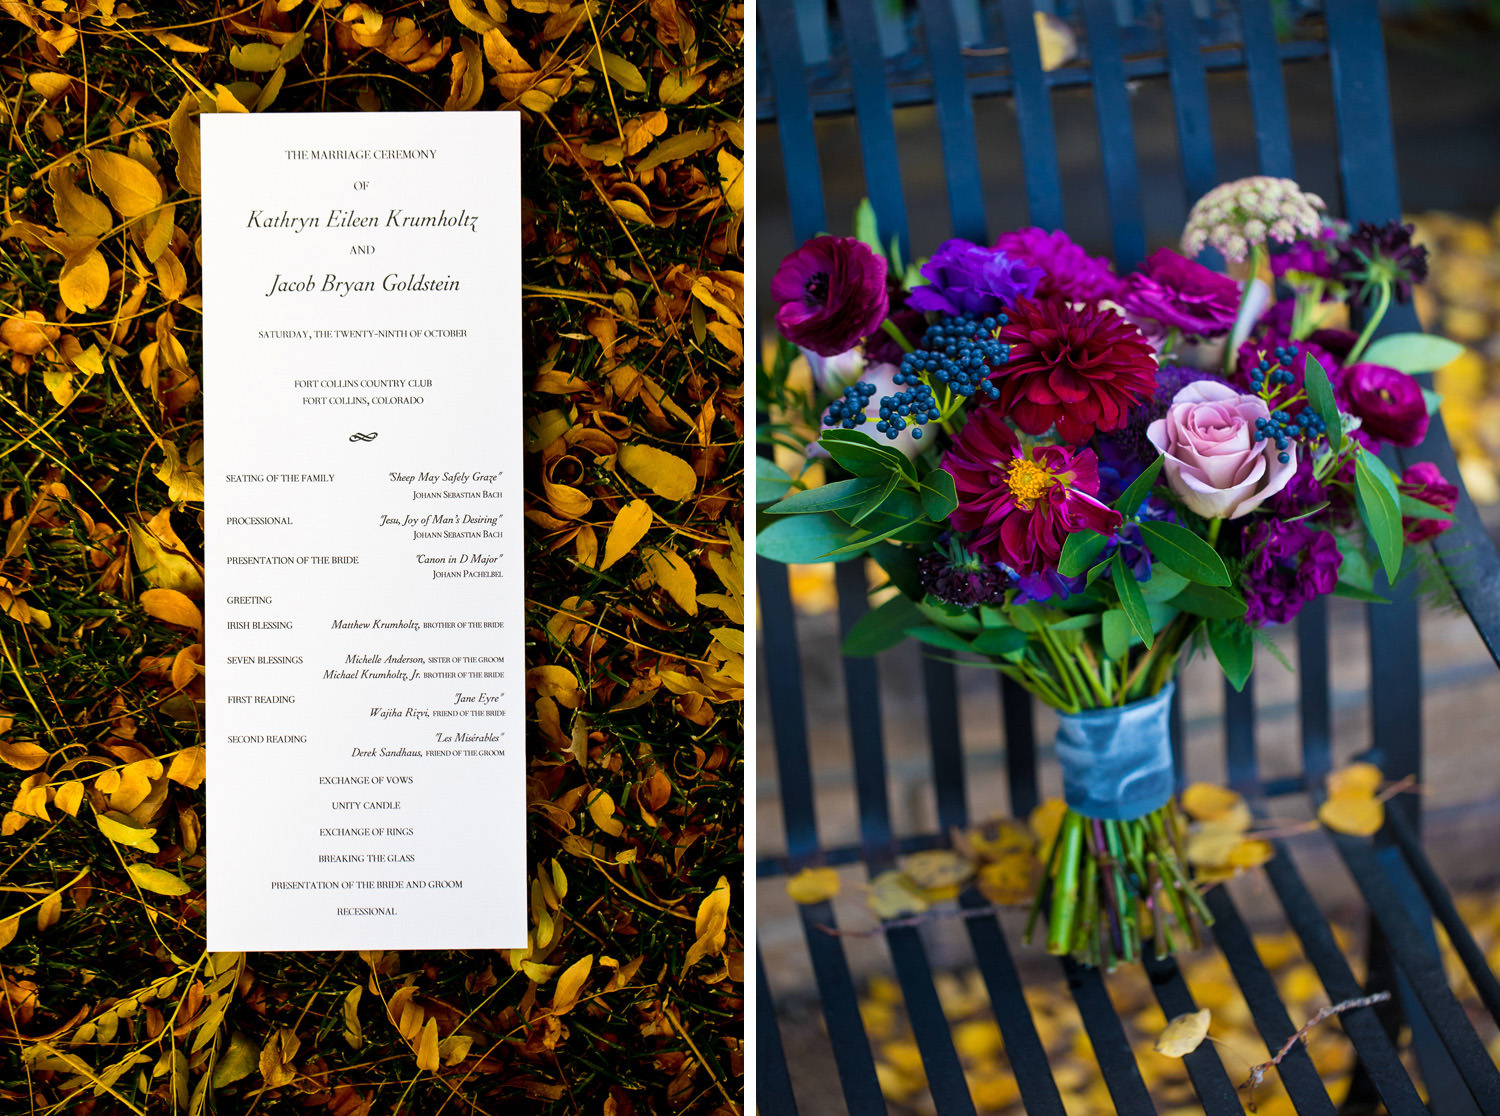 THE MARRIAGE CEREMONY
OF
Kathryn Eileen Krumholtz
AND
Jacob Bryan Goldstein
SATURDAY, THE TWENTY-NINTH OF OCTOBER
FORT COLLINS COUNTRY CLUB
FORT COLLINS, COLORADO
SEATING OF THE FAMILY "Sheep May Safely Graze"
JOHANN SEBASTIAN BACH
PROCESSIONAL "Jesu, Joy of Man's Desiring"
JOHANN SEBASTIAN BACH
PRESENTATION OF THE BRIDE "Canon in D Major"
JOHANN PACHELBEL
GREETING
IRISH BLESSING Matthew Krumholtz, BROTHER OF THE BRIDE
SEVEN BLESSINGS Michelle Anderson, SISTER OF THE GROOM
Michael Krumholtz, Jr. BROTHER OF THE BRIDE
FIRST READING "Jane Eyre"
Wajiha Rizvi, FRIEND OF THE BRIDE
SECOND READING "Les Misérables"
Derek Sandhaus, FRIEND OF THE GROOM
EXCHANGE OF VOWS
UNITY CANDLE
EXCHANGE OF RINGS
BREAKING THE GLASS
PRESENTATION OF THE BRIDE AND GROOM
RECESSIONAL